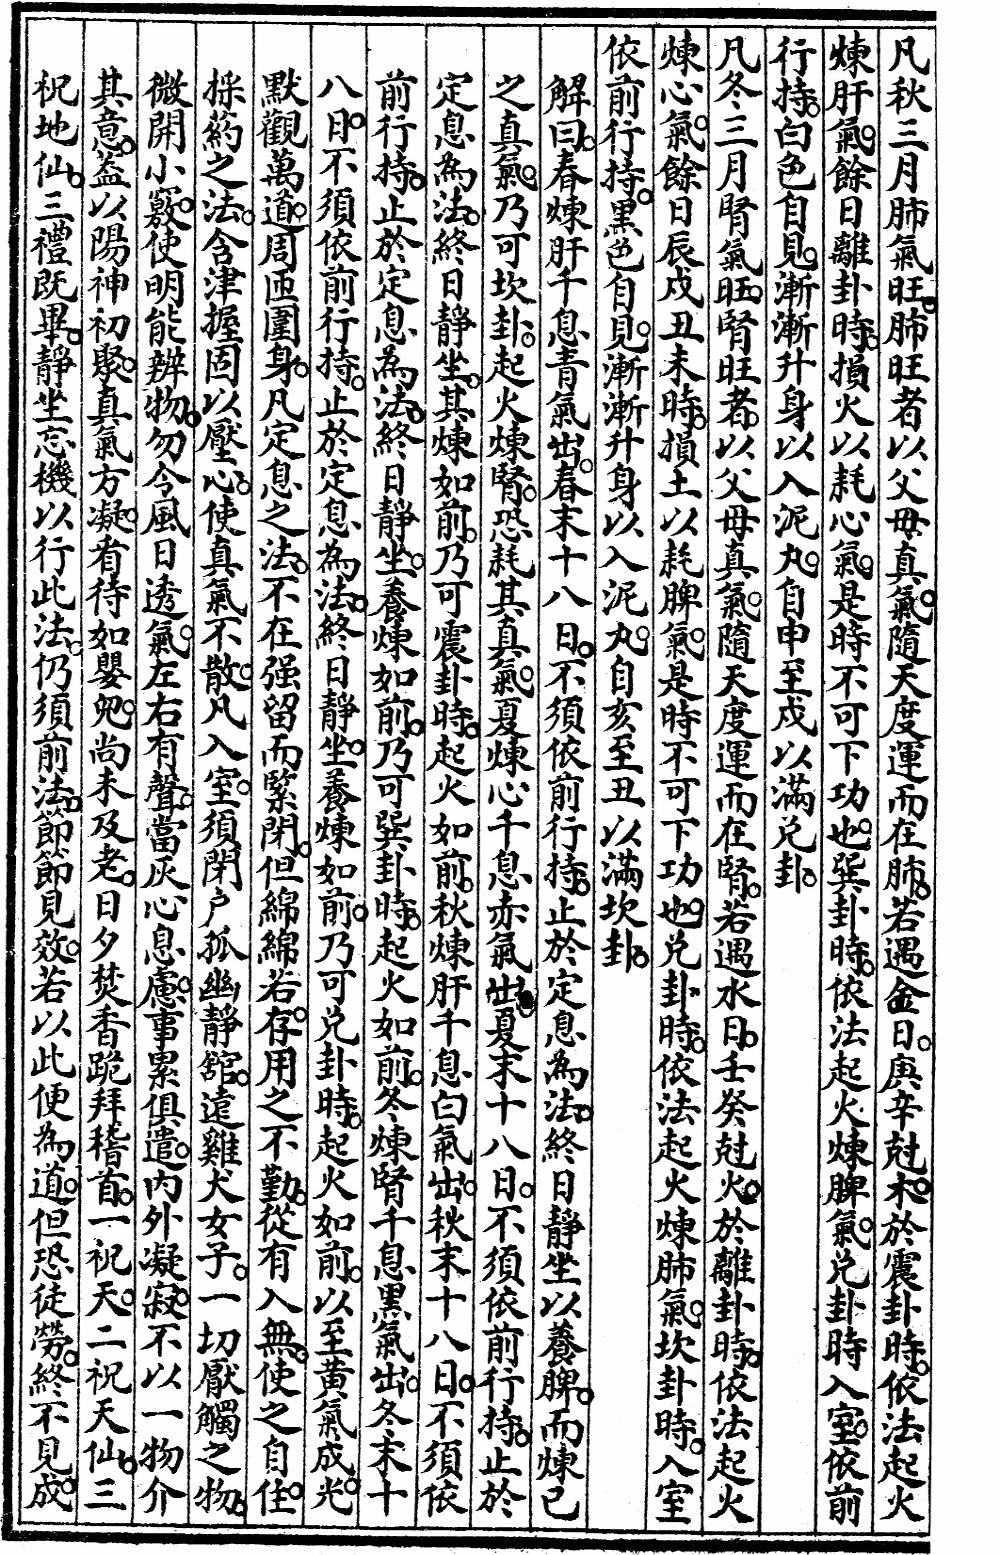 凡秋三月肺氣旺。肺旺者以父母真氣。隨天度運而在肺。若遇金日。庚辛尅木。於震卦時。依法起火
煉肝氣。餘日離卦時。損火以耗心氣。是時不可下功也。巽卦時。依法起火煉脾氣。兌卦時入室。依前
行持。白色自見。漸漸升身以入泥丸。自申至戍以滿兌卦。
凡冬三月腎氣旺。腎旺者。以父母真氣。隨天度運而在腎。若遇水日。壬癸尅火。於離卦時。依法起火
煉心氣。餘日辰戍丑未時。損土以耗脾氣。是時不可下功也。兌卦時。依法起火煉肺氣。坎卦時。入室
依前行持。黑色自見。漸漸升身以入泥丸。自亥至丑以滿坎卦。
解曰。春煉肝千息青氣出。春末十八日。不須依前行持。止於定息為法。終日靜坐以養脾。而煉己
之真氣。乃可坎卦。起火煉腎。恐耗其真氣。夏煉心千息赤氣出。夏末十八日。不須依前行持。止於
定息為法。終日靜坐。其煉如前。乃可震卦時。起火如前。秋煉肝千息白氣出。秋末十八日。不須依
前行持。止於定息為法。終日靜坐。養煉如前。乃可巽卦時。起火如前。冬煉腎千息黑氣出。冬末十
八日。不須依前行持。止於定息為法。終日靜坐。養煉如前。乃可兌卦時。起火如前。以至黃氣成光。
默觀萬道。周匝圍身。凡定息之法。不在强留而緊閉。但綿綿若存。用之不勤。從有入無。使之自住。
採葯之法。含津握固以壓心。使真氣不散。凡入室。須閉户孤幽靜舘。遠雞犬女子。一切厭觸之物。
微開小竅。使明能辨物。勿令風日透氣。左右有聲。當灰心息慮。事累俱遣。內外凝寂。不以一物介
其意。蓋以陽神初聚。真氣方凝。看待如嬰兒。尚未及老。日夕焚香跪拜稽首。一祝天。二祝天仙。三
祝地仙。三禮既畢。靜坐忘機以行此法。仍須前法。節節見效。若以此便為道。但恐徒勞。終不見成。